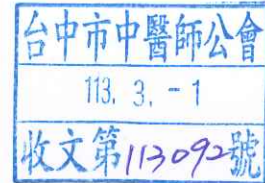 台中市中醫師公會
113. 3. - 1
收文第113092號